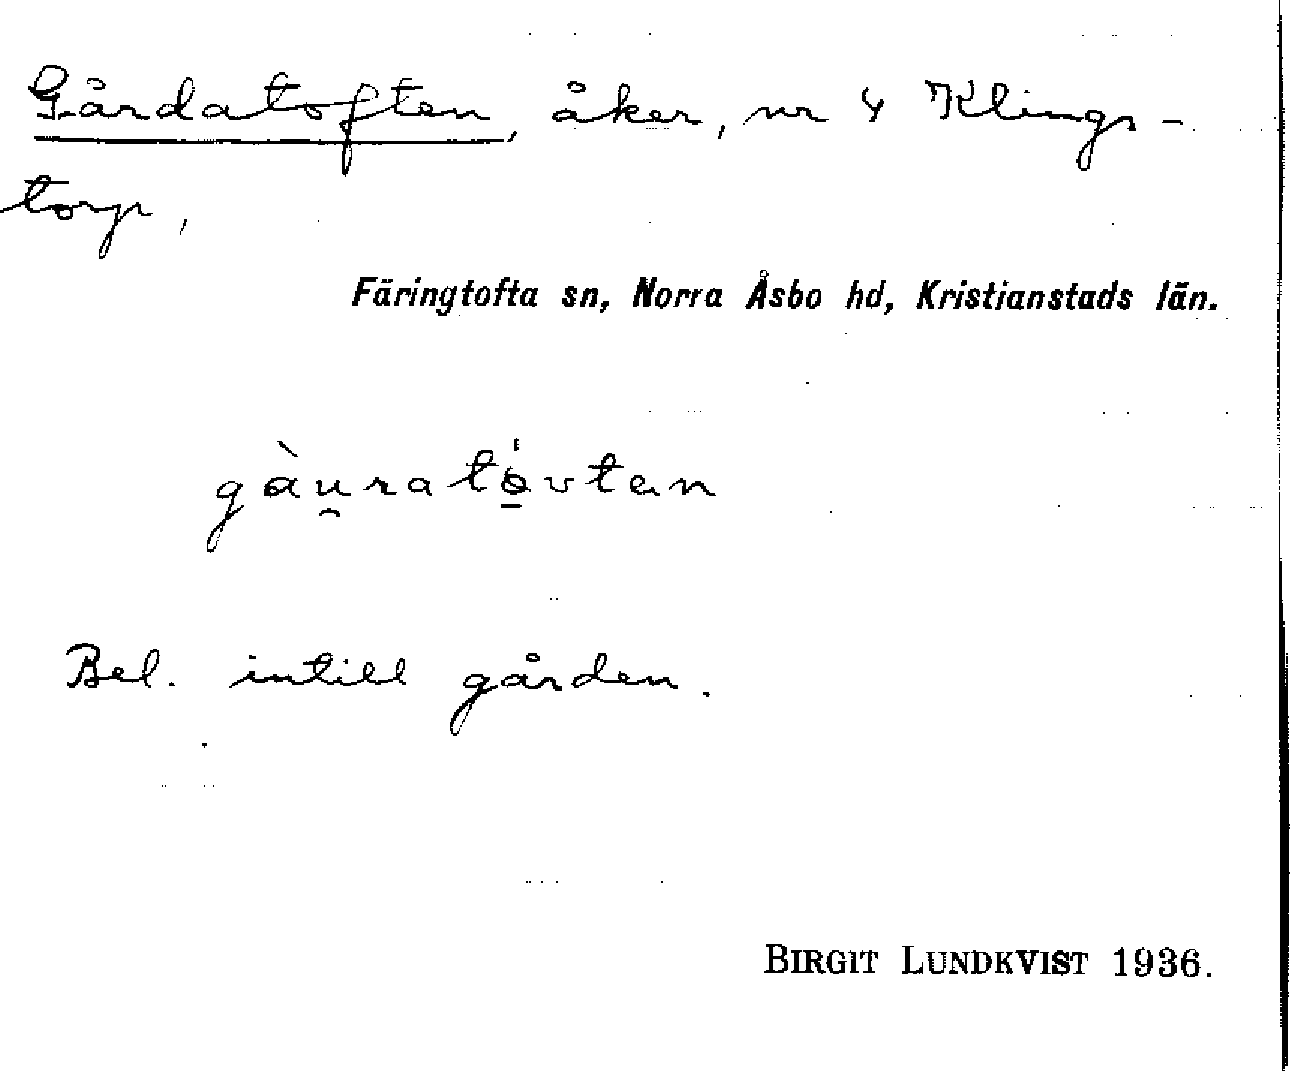 Gårdatoften, åker, nr 4 Klings-
torp,
Färingtofta sn, Norra Åsbo hd, Kristianstads län.
gàu̯rató̱vten
Bel. intill gården.
BIRGIT LUNDKVIST 1936.